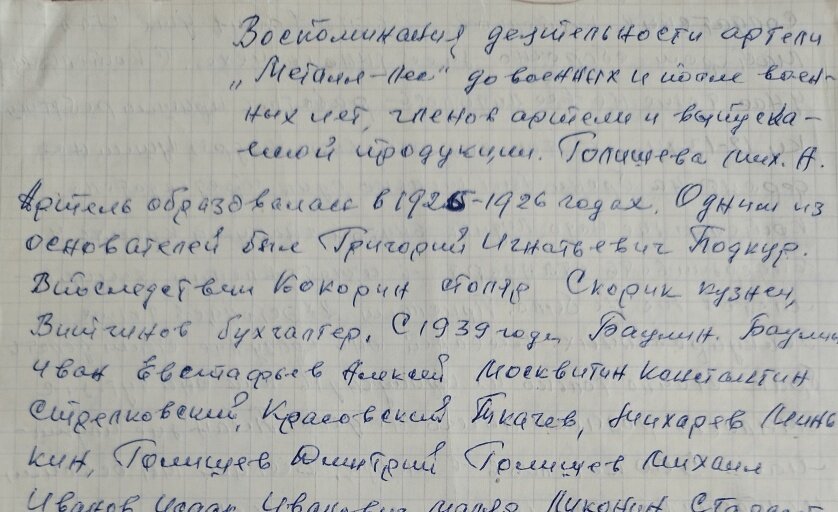 Воспоминания деятельности артели
„Металл-лес" до военных и после воен-
ных лет, членов артели и выпуска-
емой продукции. Голищева Мих. А.
Артель образовалась в 1925-1926 годах. Одним из
основателей был Григорий Игнатьевич Подкур.
Впоследствии Кокорин столяр Скорик кузнец,
бухгалтер. С 1939 года Баулин. Баулин
Иван Евстафьев Алексей Москвитин Константин
Стрелковский, Красовский Ткачев, Минь
кин, Голищев Дмитрий Голищев Михаил
Иванов Исаак Иванович маляр